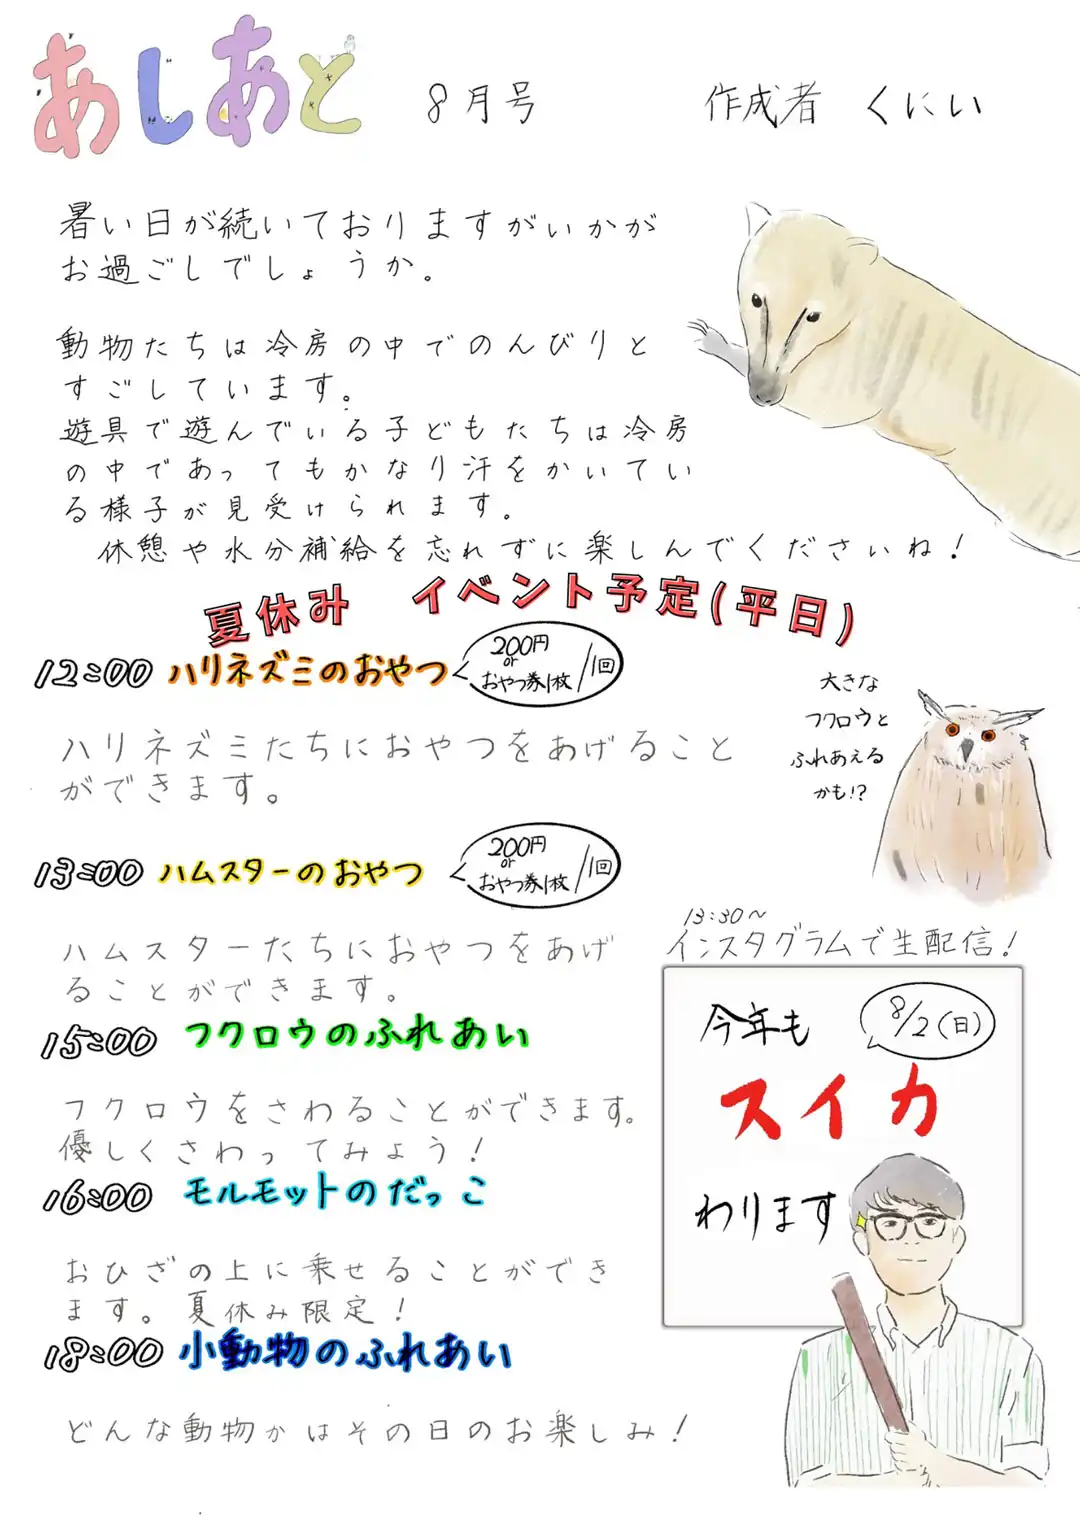 あしあと
8月号
作成者 くにい
暑い日が続いておりますがいかが
お過ごしでしょうか。
動物たちは冷房の中でのんびりと
すごしています。
遊具で遊んでいる子どもたちは冷房
の中であってもかなり汗をかいてい
る様子が見受けられます。
休憩や水分補給を忘れずに楽しんでくださいね!
夏休み イベント予定(平日)
12:00 ハリネズミのおやつ
200円
or
おやつ券1枚/1回
ハリネズミたちにおやつをあげること
ができます。
大きな
フクロウと
ふれあえる
かも!?
13:00 ハムスターのおやつ
200円
or
おやつ券1枚/1回
ハムスターたちにおやつをあげ
ることができます。
15:00 フクロウのふれあい
フクロウをさわることができます。
優しくさわってみよう!
16:00 モルモットのだっこ
おひざの上に乗せることができ
ます。夏休み限定!
18:00 小動物のふれあい
どんな動物かはその日のお楽しみ!
13:30~
インスタグラムで生配信!
今年も
8/2(日)
スイカ
わります